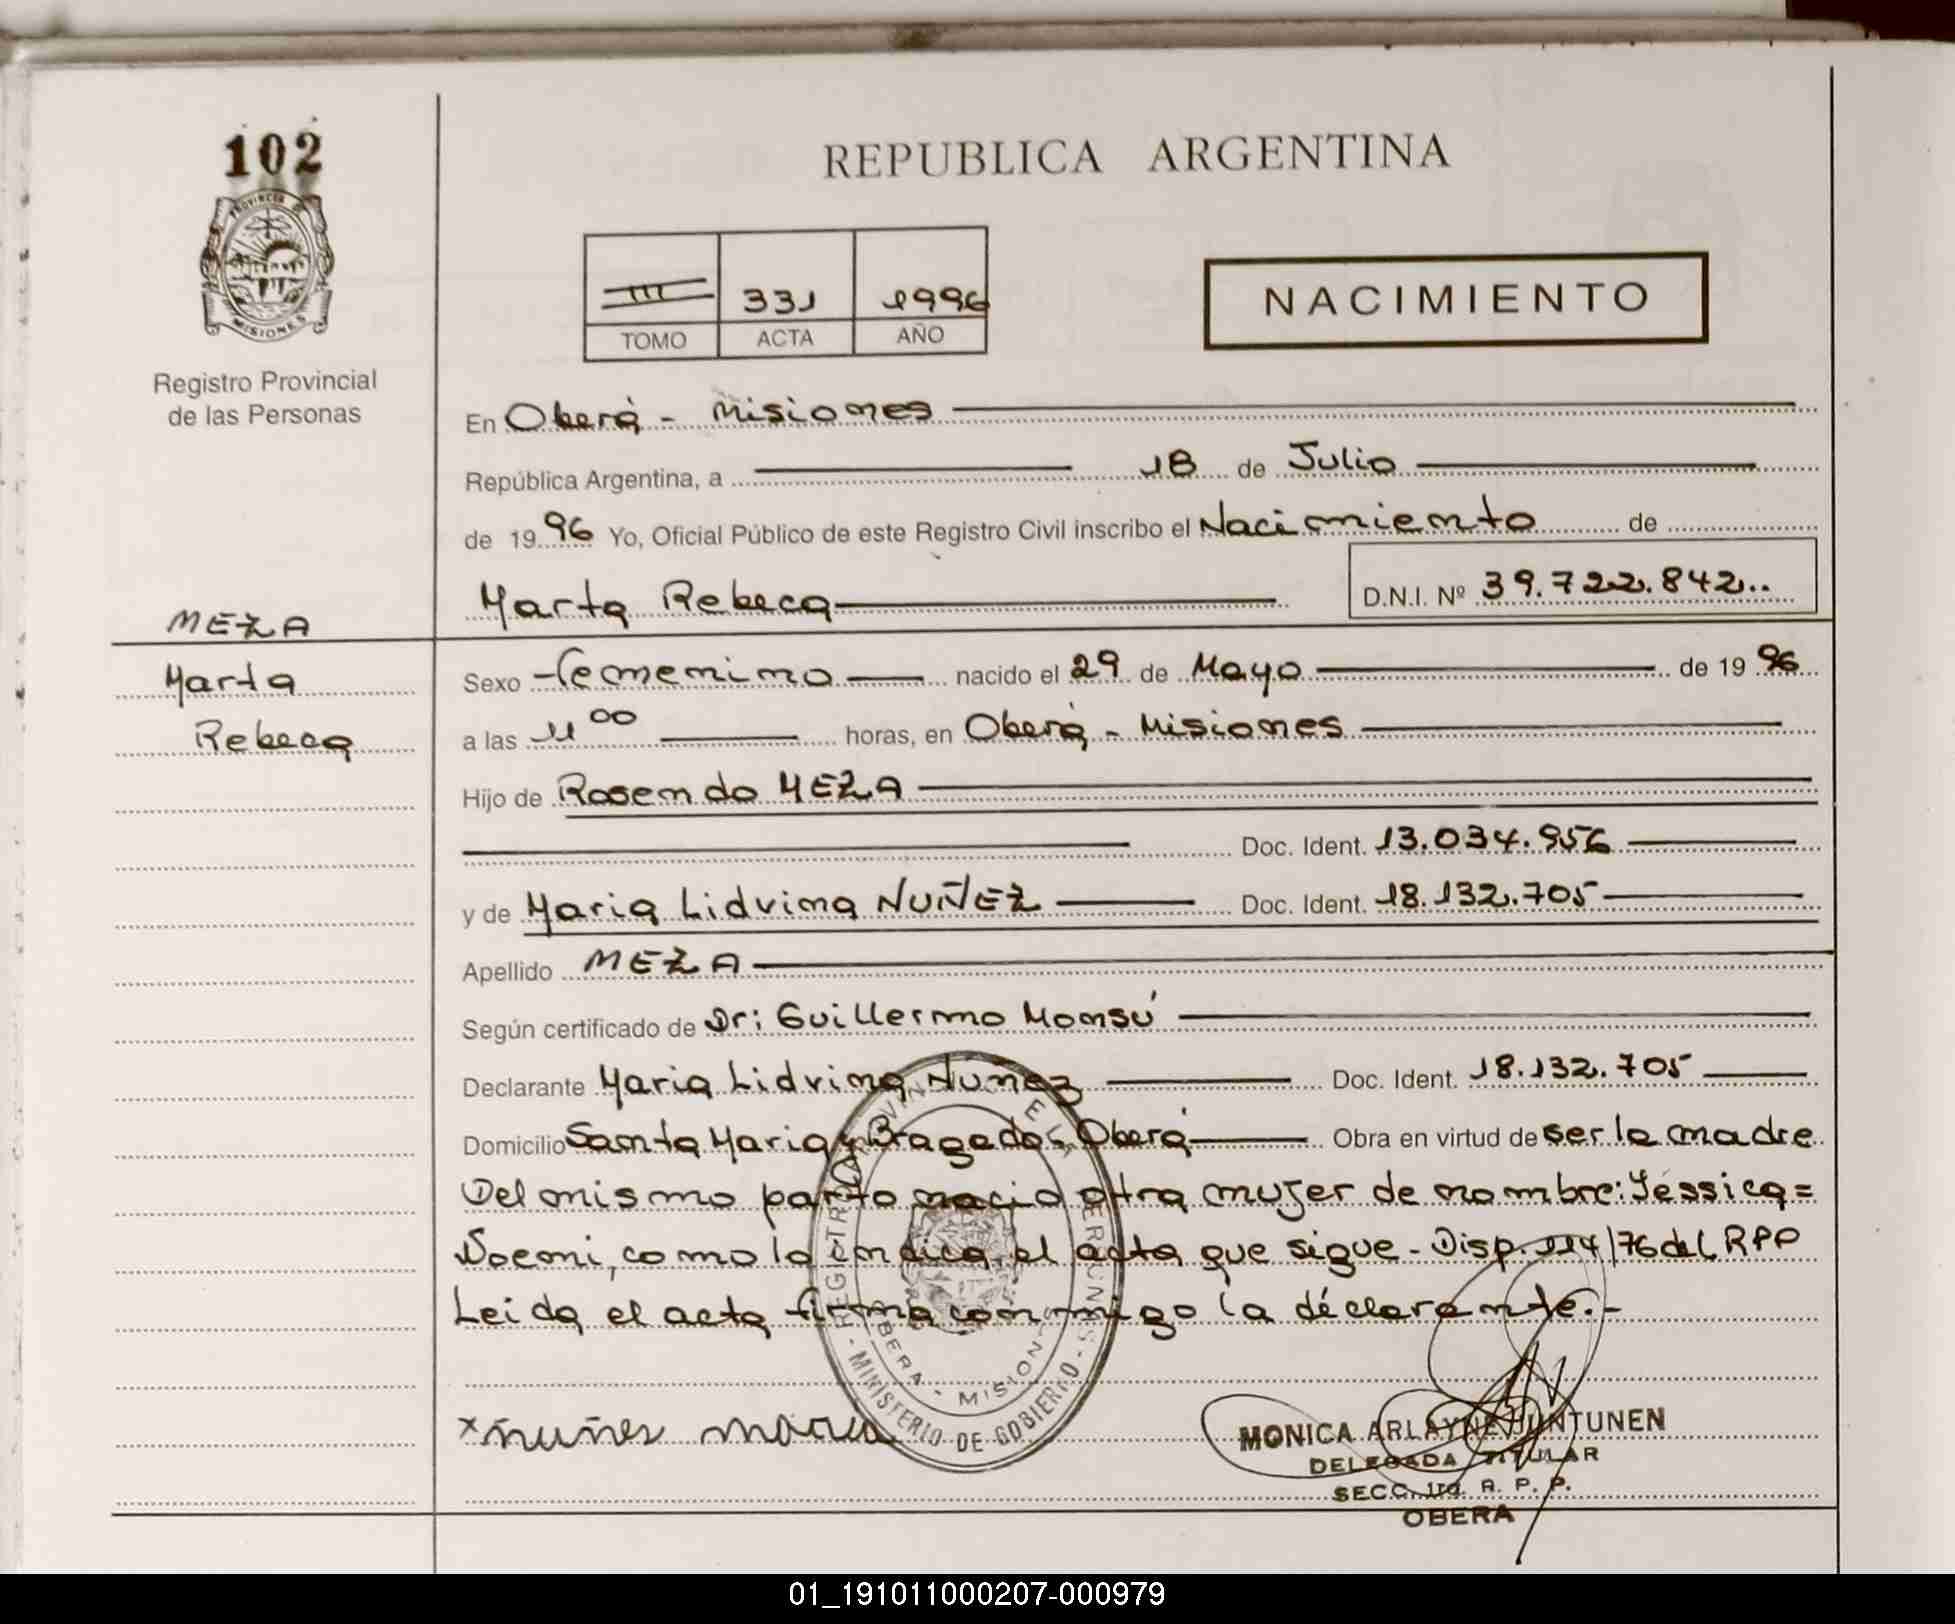 102
PROVINCIA DE
MISIONES
Registro Provincial
de las Personas
REPUBLICA ARGENTINA
III 331 1996
TOMO ACTA AÑO
NACIMIENTO
En Oberá - Misiones
República Argentina, a 18 de Julio
de 19 96 Yo, Oficial Público de este Registro Civil inscribo el Nacimiento de
Marta Rebeca D.N.I. Nº 39.722.842..
MEZA
Marta
Rebeca
Sexo femenino nacido el 29 de Mayo de 19 96
a las 11 00 horas, en Oberá - Misiones
Hijo de Rosendo MEZA
Doc. Ident. 13.034.956
y de Maria Lidvina NUÑEZ Doc. Ident. 18.132.705
Apellido MEZA
Según certificado de Dr: Guillermo Monsú
Declarante Maria Lidvina Nuñez Doc. Ident. 18.132.705
Domicilio Santa Maria y Bragado - Oberá Obra en virtud de ser la madre
Del mismo parto nació otra mujer de nombre: Yéssica =
Noemi, como lo indica el acta que sigue - Disp. 114/76 del RPP
Leida el acta firma conmigo la déclarante.-
x nuñes maria
MINISTERIO DE GOBIERNO
MONICA ARLAYNE JUNTUNEN
DELEGADA TITULAR
SECC. 1ra. R. P. P.
OBERA
01_191011000207-000979